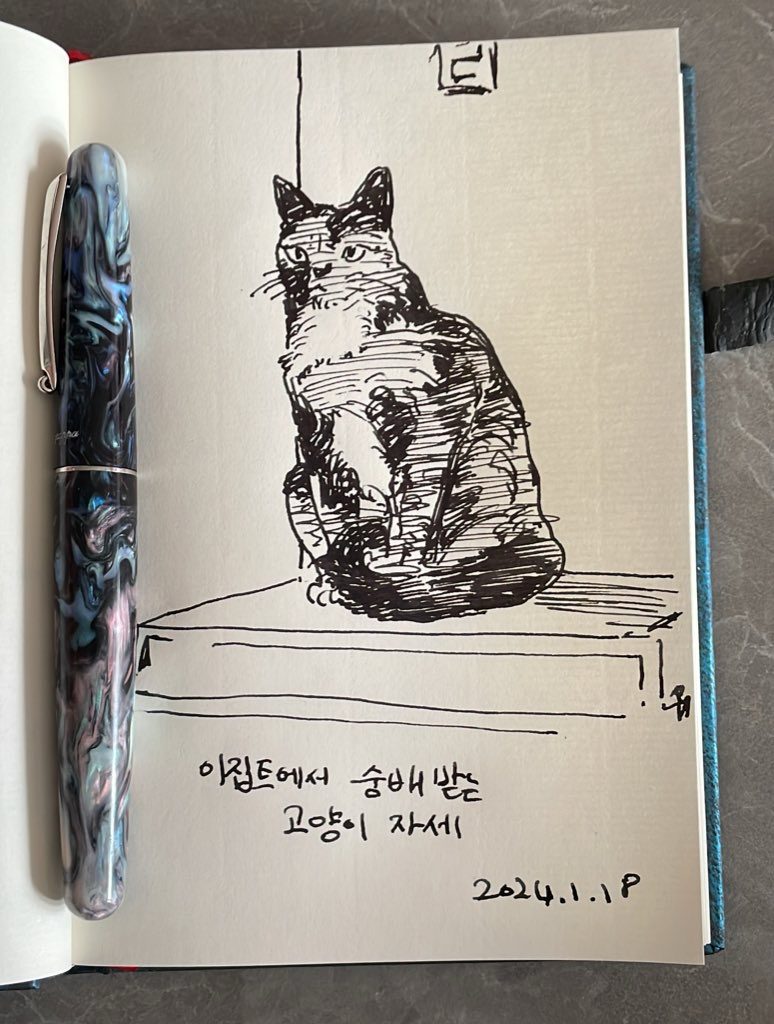 이집트에서 숭배 받는
고양이 자세
2024.1.18